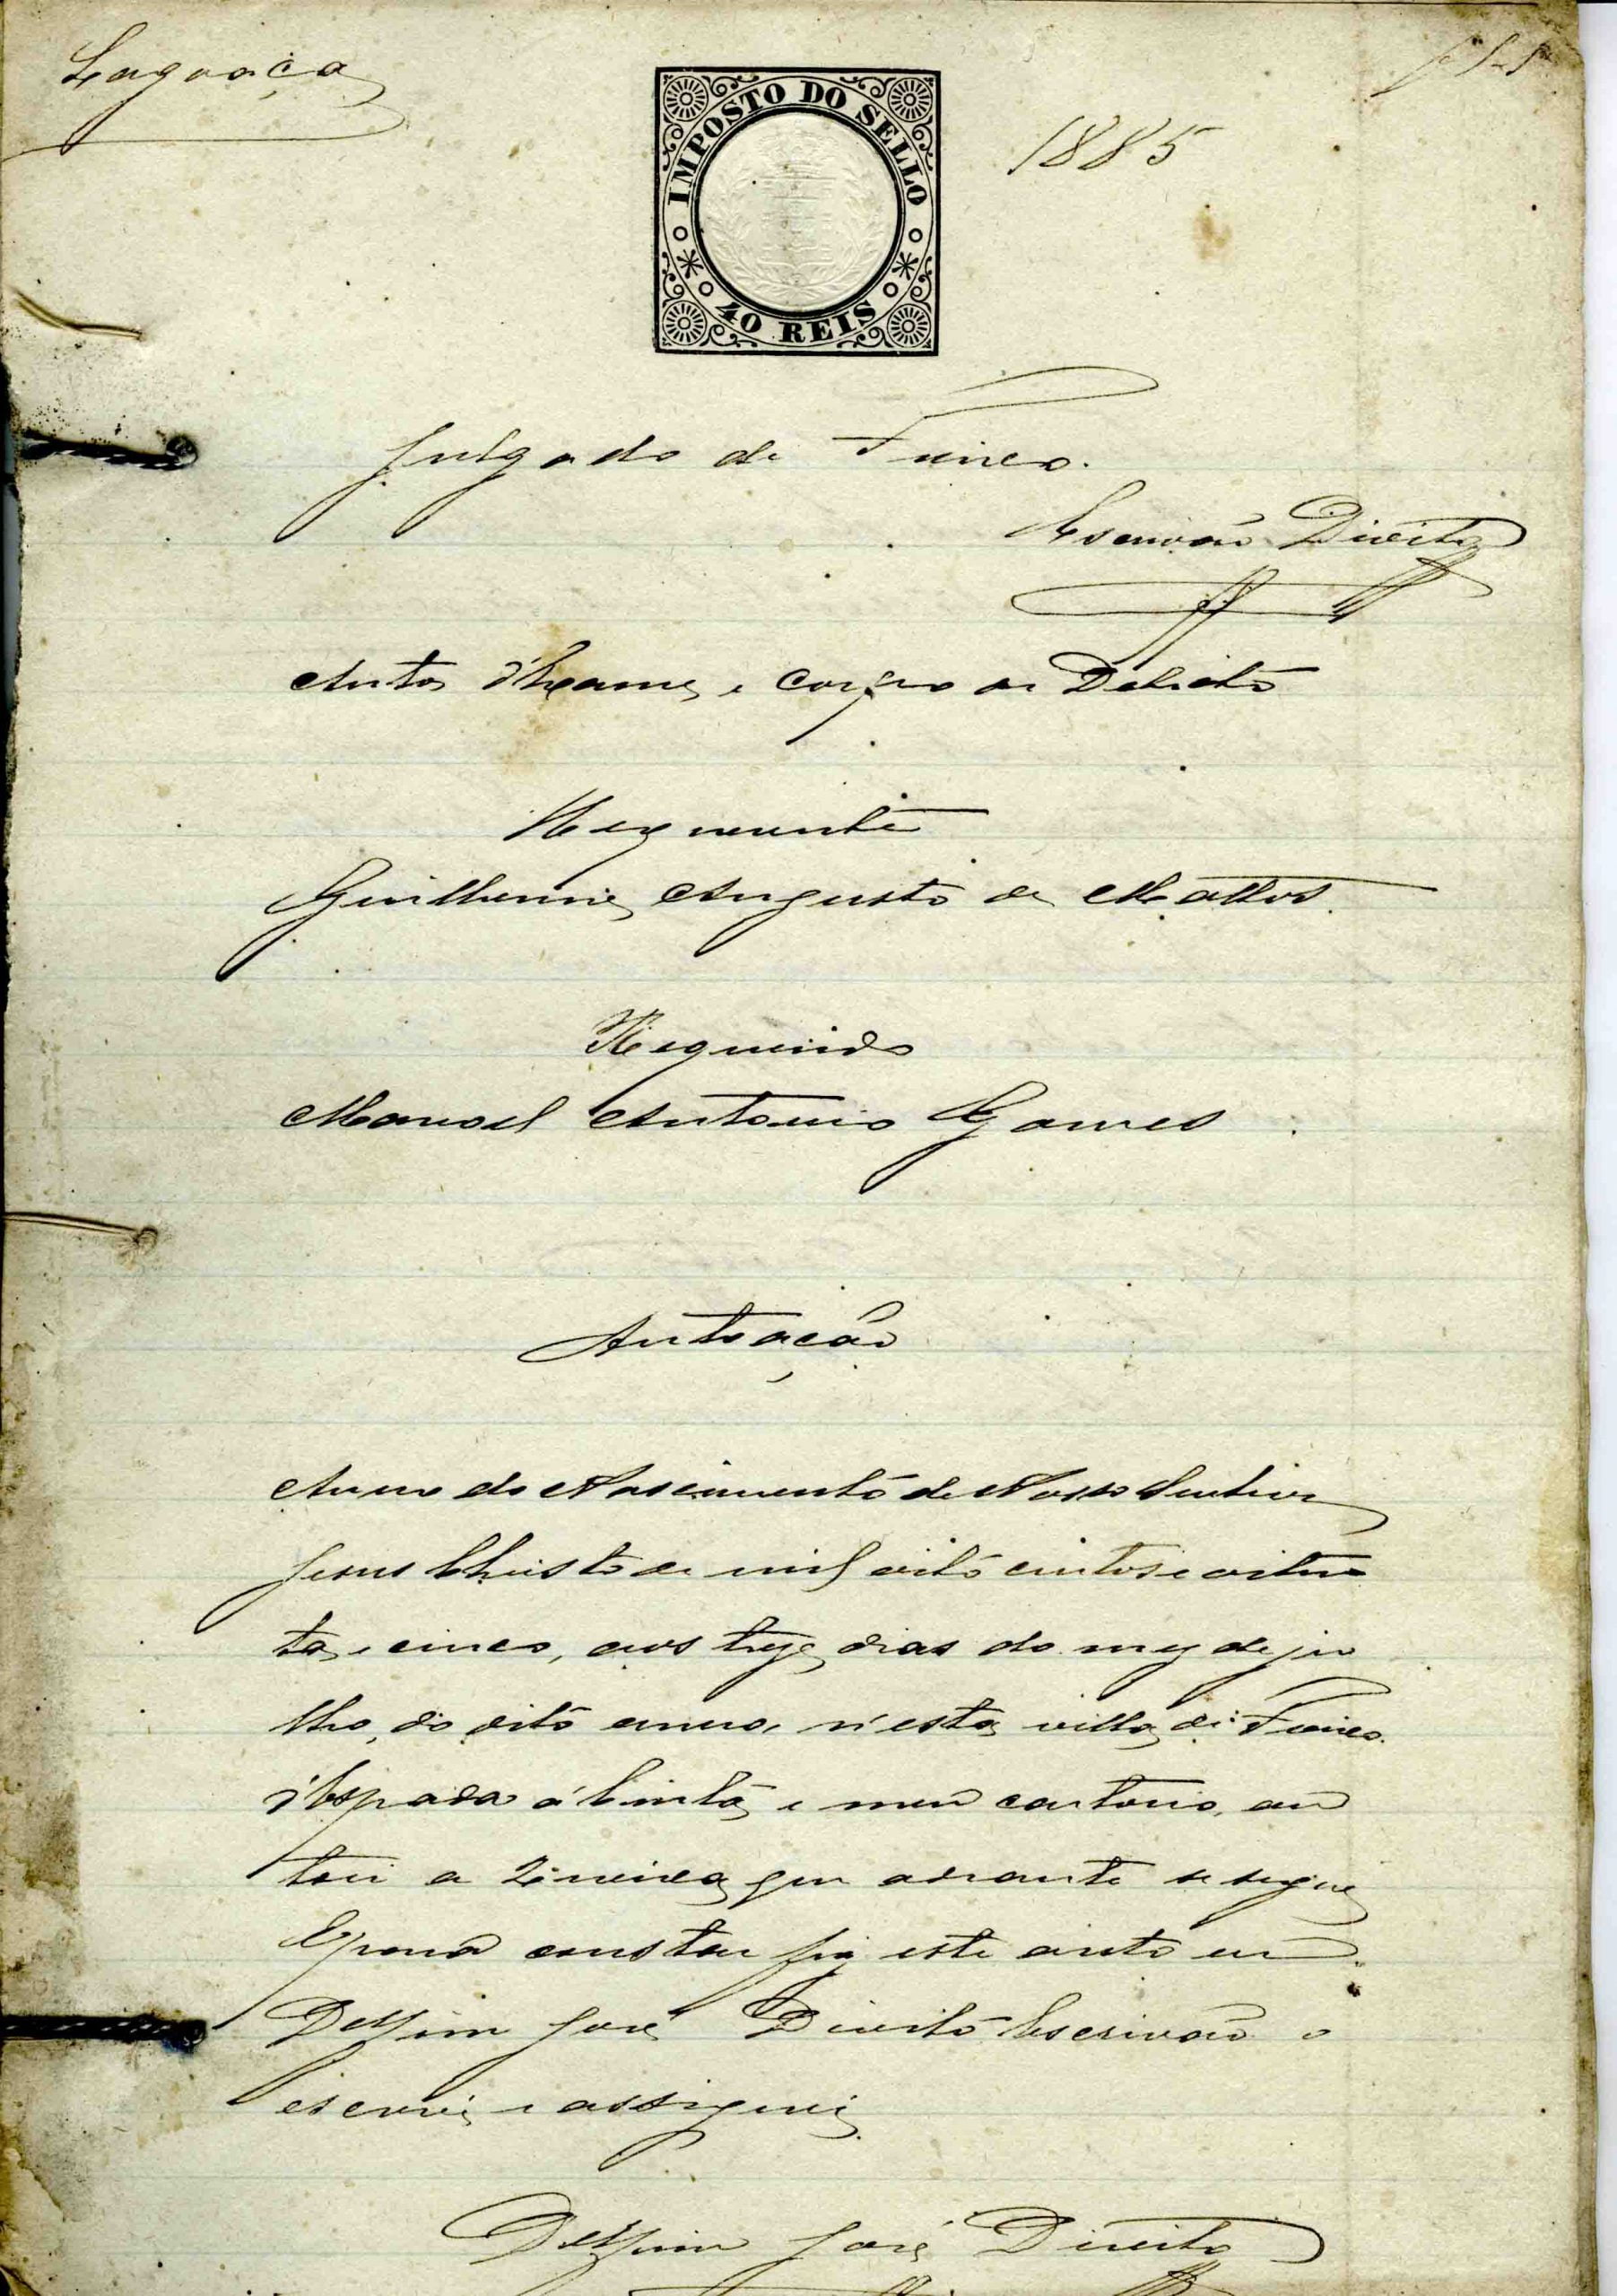 Lagoaça
IMPOSTO DO SELLO
40 REIS
1885
Julgado de Freixo.
Escrivão Direito
Autos d'Exame e Corpo de Delicto
Requerente
Guilherme Augusto de Mattos.
Requerido
Manoel Antonio Gomes
Autoação
Anno do Nascimento de Nosso Senhor
Jesus Christo de mil oito centos e oiten
ta e cinco, aos treze dias do mez de ju
lho, do dito anno, n'esta villa de Freixo
d'Espada á Cinta, e meu cartorio, au
toei a que adiante se segue
E para constar fiz este auto eu
Delfim José Direito Escrivão o
escrevi e assignei.
Delfim José Direito